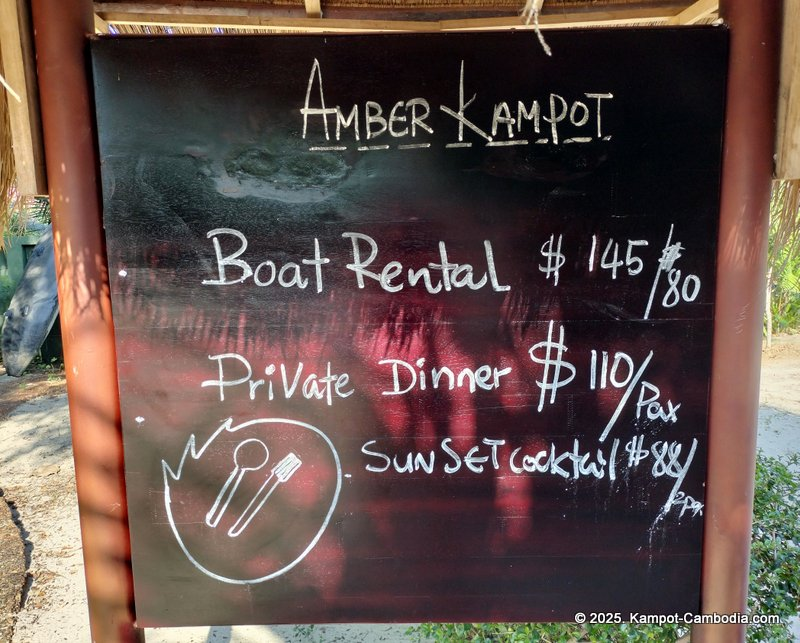 AMBER KAMPOT
Boat Rental $ 145/$80
Private Dinner $ 110/Pax
SUNSET Cocktail $88/2pax
© 2025. Kampot-Cambodia.com